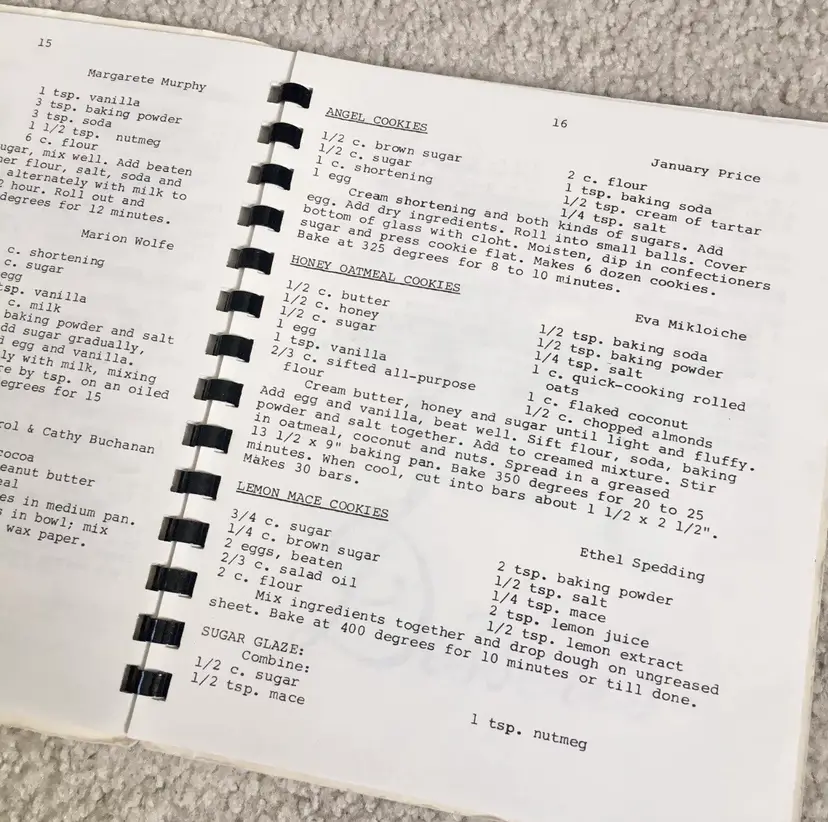 15
Margarete Murphy
1 tsp. vanilla
3 tsp. baking powder
3 tsp. soda
1 1/2 tsp. nutmeg
6 c. flour
mix well. Add beaten
flour, salt, soda and
alternately with milk to
hour. Roll out and
degrees for 12 minutes.
Marion Wolfe
c. shortening
c. sugar
egg
tsp. vanilla
c. milk
baking powder and salt
sugar gradually,
egg and vanilla.
with milk, mixing
by tsp. on an oiled
for 15
& Cathy Buchanan
cocoa
butter
in medium pan.
in bowl; mix
wax paper.
16
ANGEL COOKIES
January Price
1/2 c. brown sugar
1/2 c. sugar
1 c. shortening
1 egg
2 c. flour
1 tsp. baking soda
1/2 tsp. cream of tartar
1/4 tsp. salt
Cream shortening and both kinds of sugars. Add
egg. Add dry ingredients. Roll into small balls. Cover
bottom of glass with cloht. Moisten, dip in confectioners
sugar and press cookie flat. Makes 6 dozen cookies.
Bake at 325 degrees for 8 to 10 minutes.
HONEY OATMEAL COOKIES
Eva Mikloiche
1/2 c. butter
1/2 c. honey
1/2 c. sugar
1 egg
1 tsp. vanilla
2/3 c. sifted all-purpose
flour
1/2 tsp. baking soda
1/2 tsp. baking powder
1/4 tsp. salt
1 c. quick-cooking rolled
oats
1 c. flaked coconut
1/2 c. chopped almonds
Cream butter, honey and sugar until light and fluffy.
Add egg and vanilla, beat well. Sift flour, soda, baking
powder and salt together. Add to creamed mixture. Stir
in oatmeal, coconut and nuts. Spread in a greased
13 1/2 x 9" baking pan. Bake 350 degrees for 20 to 25
minutes. When cool, cut into bars about 1 1/2 x 2 1/2".
Makes 30 bars.
LEMON MACE COOKIES
Ethel Spedding
3/4 c. sugar
1/4 c. brown sugar
2 eggs, beaten
2/3 c. salad oil
2 c. flour
2 tsp. baking powder
1/2 tsp. salt
1/4 tsp. mace
2 tsp. lemon juice
1/2 tsp. lemon extract
Mix ingredients together and drop dough on ungreased
sheet. Bake at 400 degrees for 10 minutes or till done.
SUGAR GLAZE:
Combine:
1/2 c. sugar
1/2 tsp. mace
1 tsp. nutmeg